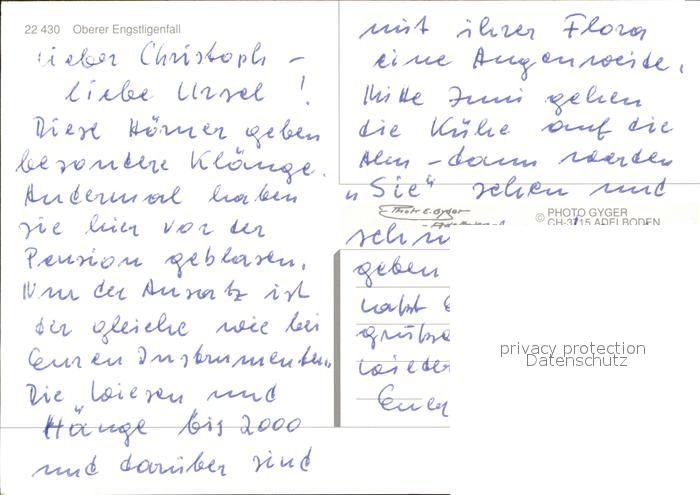 22 430 Oberer Engstligenfall
Lieber Christoph –
liebe Ursel !
Diese Hörner geben
besondere Klänge.
Andermal haben
sie hier vor der
Pension geblasen.
Nur der Ansatz ist
der gleiche wie bei
Euren Instrumenten.
Die Wiesen und
Hänge bis 2000
und darüber sind
mit ihrer Flora
eine Augenweide.
Mitte Juni gehen
die Kühe auf die
Alm – dann werden
„Sie“ sehen und
Photo E. Gyger
Adelboden
© PHOTO GYGER
CH-3715 ADELBODEN
geben
habt
wieder
Euer
privacy protection
Datenschutz